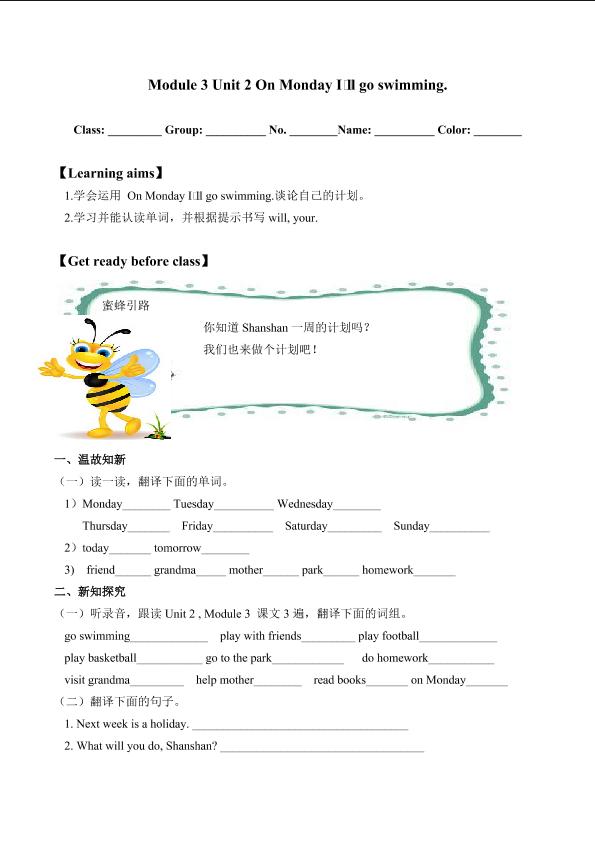 Module 3 Unit 2 On Monday I□ll go swimming.
Class: _________ Group: __________ No. ________Name: __________ Color: ________
【Learning aims】
1.学会运用 On Monday I□ll go swimming.谈论自己的计划。
2.学习并能认读单词，并根据提示书写 will, your.
【Get ready before class】
蜜蜂引路
你知道 Shanshan 一周的计划吗？
我们也来做个计划吧！
一、温故知新
（一）读一读，翻译下面的单词。
1）Monday________ Tuesday__________ Wednesday________
Thursday_______ Friday__________ Saturday_________ Sunday__________
2）today_______ tomorrow________
3) friend______ grandma_____ mother______ park______ homework_______
二、新知探究
（一）听录音，跟读 Unit 2 , Module 3 课文 3 遍，翻译下面的词组。
go swimming_____________ play with friends_________ play football_____________
play basketball___________ go to the park____________ do homework___________
visit grandma_________ help mother________ read books_______ on Monday_______
（二）翻译下面的句子。
1. Next week is a holiday. ____________________________________
2. What will you do, Shanshan? __________________________________